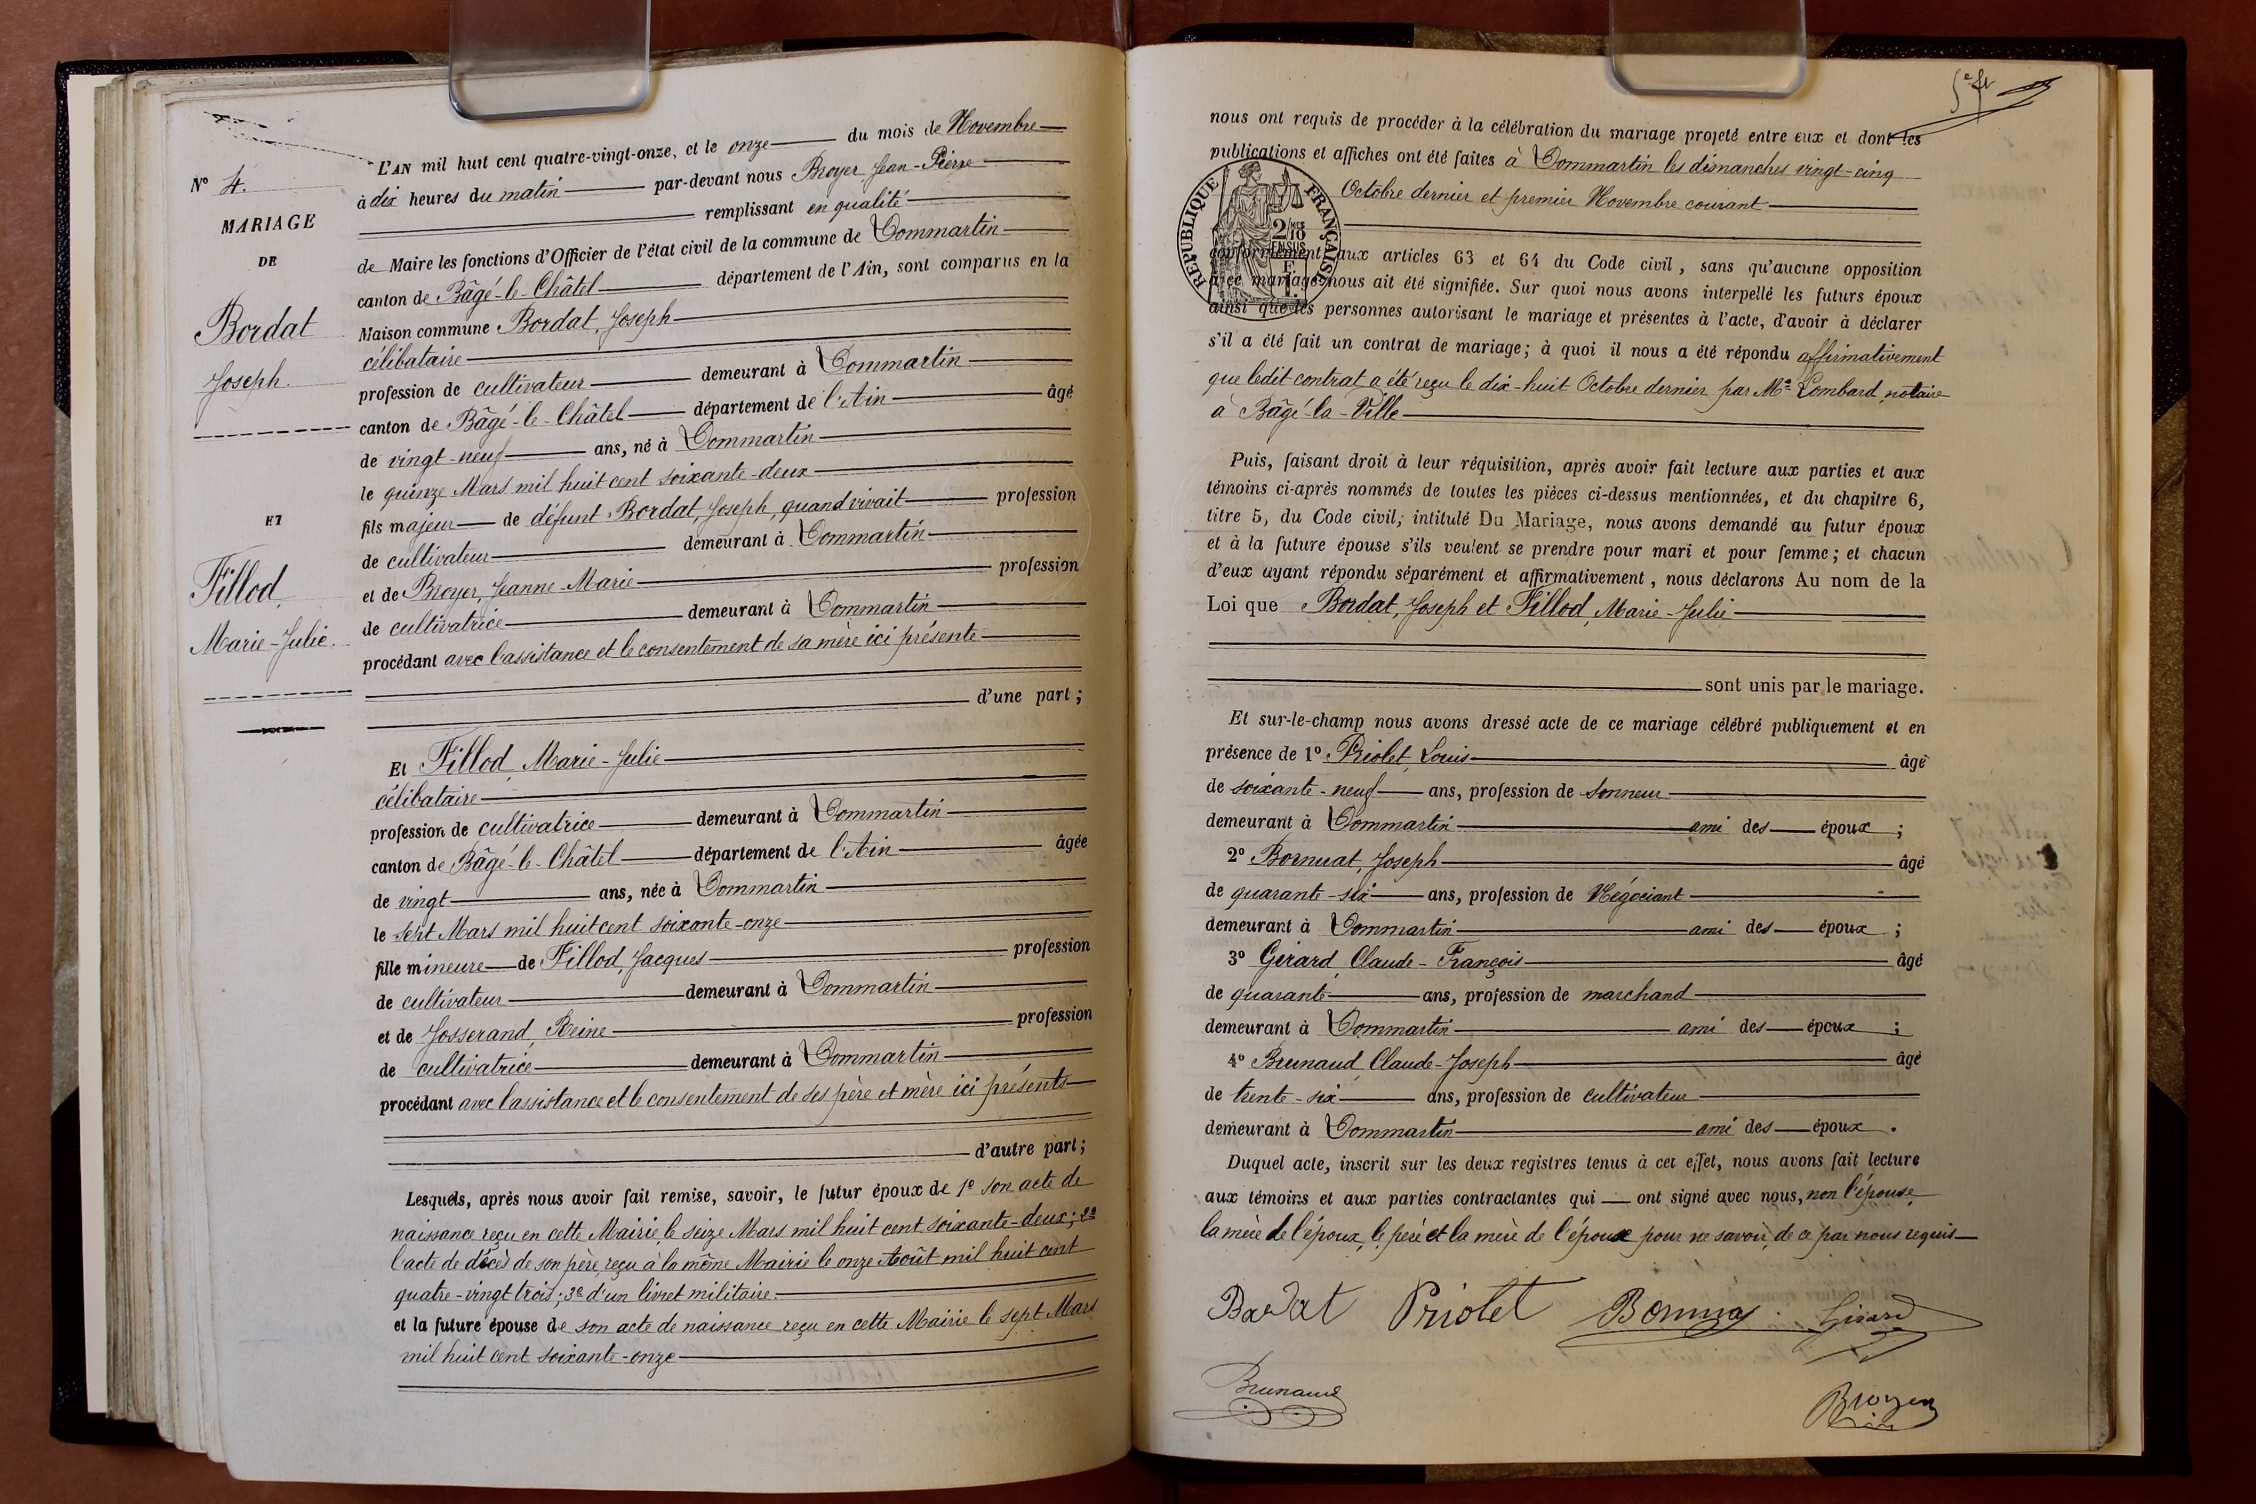 L'AN mil huit cent quatre-vingt-onze, et le onze du mois de Novembre
à dix heures du matin par-devant nous Broyer Jean-Pierre
remplissant en qualité
de Maire les fonctions d'Officier de l'état civil de la commune de Dommartin
canton de Bâgé-le-Châtel département de l'Ain, sont comparus en la
Maison commune Bordat, Joseph
célibataire
profession de cultivateur demeurant à Dommartin
canton de Bâgé-le-Châtel département de l'Ain âgé
de vingt-neuf ans, né à Dommartin
le quinze Mars mil huit cent soixante-deux
fils majeur de défunt Bordat, Joseph, quand vivait profession
de cultivateur demeurant à Dommartin
et de Broyer, Jeanne-Marie profession
de cultivatrice demeurant à Dommartin
procédant avec l'assistance et le consentement de sa mère ici présente
d'une part ;
Et Fillod, Marie-Julie
célibataire
profession de cultivatrice demeurant à Dommartin
canton de Bâgé-le-Châtel département de l'Ain âgée
de vingt ans, née à Dommartin
le sept Mars mil huit cent soixante-onze
fille mineure de Fillod, Jacques profession
de cultivateur demeurant à Dommartin
et de Josserand, Reine profession
de cultivatrice demeurant à Dommartin
procédant avec l'assistance et le consentement de ses père et mère ici présents
d'autre part ;
Lesquels, après nous avoir fait remise, savoir, le futur époux de 1º son acte de
naissance reçu en cette Mairie le seize Mars mil huit cent soixante-deux ; 2º
l'acte de décès de son père reçu à la même Mairie le onze Août mil huit cent
quatre-vingt trois ; 3º d'un livret militaire.
et la future épouse de son acte de naissance reçu en cette Mairie le sept Mars
mil huit cent soixante-onze
Nº 4.
MARIAGE
DE
Bordat
Joseph.
ET
Fillod,
Marie-Julie.
nous ont requis de procéder à la célébration du mariage projeté entre eux et dont les
publications et affiches ont été faites à Dommartin les dimanches vingt-cinq
Octobre dernier et premier Novembre courant
RÉPUBLIQUE FRANÇAISE
2/10
EN SUS
conformément aux articles 63 et 64 du Code civil, sans qu'aucune opposition
à ce mariage nous ait été signifiée. Sur quoi nous avons interpellé les futurs époux
ainsi que les personnes autorisant le mariage et présentes à l'acte, d'avoir à déclarer
s'il a été fait un contrat de mariage ; à quoi il nous a été répondu affirmativement
que ledit contrat a été reçu le dix-huit Octobre dernier par Me Lombard, notaire
à Bâgé-la-Ville
Puis, faisant droit à leur réquisition, après avoir fait lecture aux parties et aux
témoins ci-après nommés de toutes les pièces ci-dessus mentionnées, et du chapitre 6,
titre 5, du Code civil, intitulé Du Mariage, nous avons demandé au futur époux
et à la future épouse s'ils veulent se prendre pour mari et pour femme ; et chacun
d'eux ayant répondu séparément et affirmativement, nous déclarons Au nom de la
Loi que Bordat, Joseph et Fillod, Marie-Julie
sont unis par le mariage.
Et sur-le-champ nous avons dressé acte de ce mariage célébré publiquement et en
présence de 1º Priolet, Louis âgé
de soixante-neuf ans, profession de sonneur
demeurant à Dommartin ami des époux ;
2º Bornuat, Joseph âgé
de quarante-six ans, profession de Négociant
demeurant à Dommartin ami des époux ;
3º Girard, Claude-François âgé
de quarante ans, profession de marchand
demeurant à Dommartin ami des époux ;
4º Brunaud, Claude-Joseph âgé
de trente-six ans, profession de cultivateur
demeurant à Dommartin ami des époux.
Duquel acte, inscrit sur les deux registres tenus à cet effet, nous avons fait lecture
aux témoins et aux parties contractantes qui ont signé avec nous, non l'épouse,
la mère de l'époux, le père et la mère de l'épouse pour ne savoir, de ce par nous requis
Bordat Priolet Girard
Brunaud
Broyer